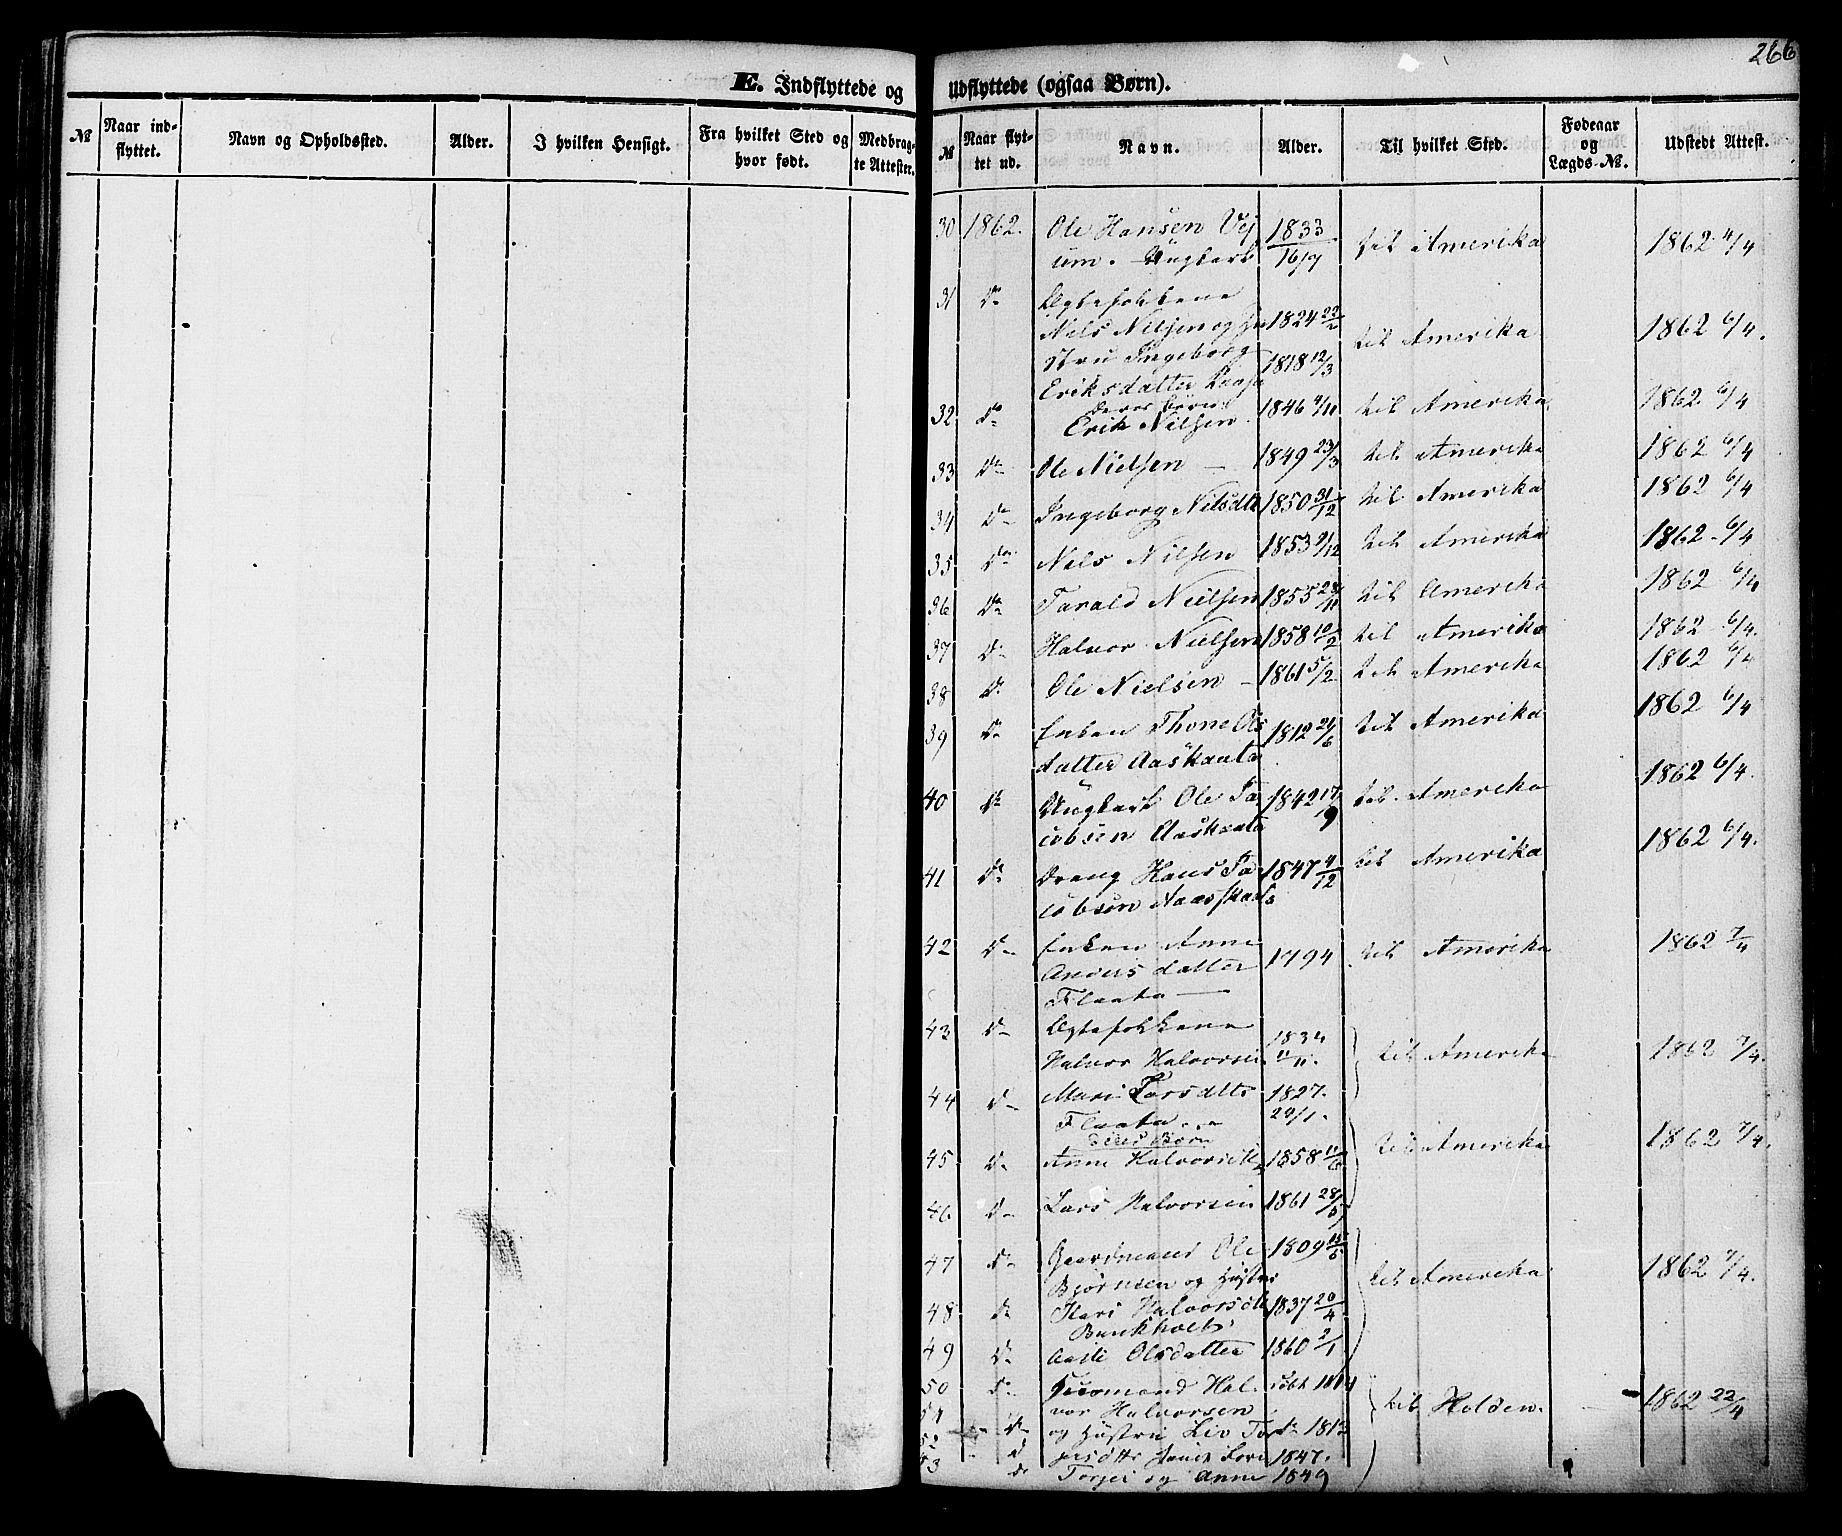 266
E. Indflyttede og
Udflyttede (ogsaa Børn).
№ Naar indflyttet. Navn og Opholdssted. Alder. I hvilken Hensigt. Fra hvilket Sted og hvor født. Medbragte Attester.
№ Naar flyttet ud. Navn. Alder. Til hvilket Sted. Fødeaar og Lægds-№. Udstedt Attest.
30 1862. Ole Hansen Vej 1833 til Amerika 1862 4/4
um. Ungkarl 16/9
31 Do Ægtefolkene
Niels Nielsen og Hu 1824 22/2 til Amerika 1862 6/4.
stru Ingeborg 1818 12/3
Eriksdatter
32. Do deres børn: 1846 9/11 til Amerika. 1862. 6/4
Erik Nilsen.
33 Do Ole Nielsen — 1849 23/3 til Amerika 1862 6/4
34 Do Ingeborg Nilsdtr 1850 31/12 til Amerika 1862 6/4
35 Do Nels Nilsen 1853 9/12 til Amerika 1862 6/4
36 Do Tarald Nielsen 1855 28/11 til Amerika 1862 6/4
37 Do Halvor Nielsen 1858 10/2 til Amerika 1862 6/4.
38 Do Ole Nielsen — 1861 5/2 til Amerika 1862 6/4
39 Do Enken Thone Ols 1812 21/6 til Amerika 1862 6/4
datter Aaskaata
40 Do Ungkarl Ole Ja 1842 17/9 til Amerika 1862 6/4.
cobsen Aaskaata
41 Do Dreng Hans Ja 1847 4/12 til Amerika 1862 6/4.
cobsen
42 Do Enken Anne 1794 til Amerika 1862 7/4
Anders datter
Flaata —
43 Do Ægtefolkene 1834
Halvor Halvorsen 11/11. til Amerika 1862 7/4.
44 Do Mari Larsdtr 1827.
Flaata 20/1.
deres Børn til Amerika 1862 7/4.
45 Do Anne Halvorsdtr 1858
46 Do Lars Halvorsen 1861
47 Do Gaardmand Ole 1809 til Amerika 1862 7/4.
Bjørnsen og Hustru
48 Do Kari Halvorsdtr 1837 20/4
49 Do Aaste Olsdatter 1860 2/1
50 Do Huusmand Hal-
51 vor Halvorsen til Holden. 1862 22/4
52 Do og Hustru Liv Tor 1813
53 Do 1847.
Do Torjei og Anne 1849